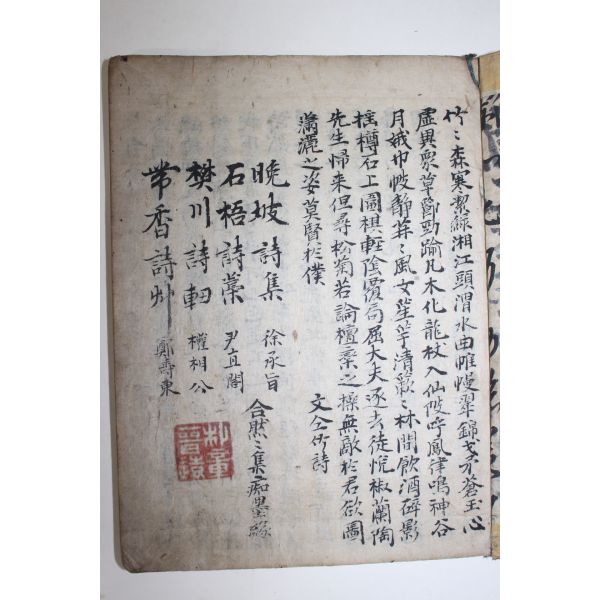 竹〻森寒潔綠湘江頭渭水曲帷幔翠錦戈矛蒼玉心
虛異眾草節勁踰凡木化龍杖入仙陂呼鳳律鳴神谷
月娥巾帔靜苒〻風女笙竽清肅〻林間飮酒碎影
搖樽石上圍棋輕陰覆局屈大夫逐去徒悅椒蘭陶
先生歸來但尋松菊若論檀欒之操無敵於君欲圖
瀟灑之姿莫賢於僕 文仝竹詩
晚坡詩集 徐承旨
石梧詩藁 尹直閣
樊川詩軸 權相公
帶香詩艸 鄭壽東
合然〻集痴墨緣